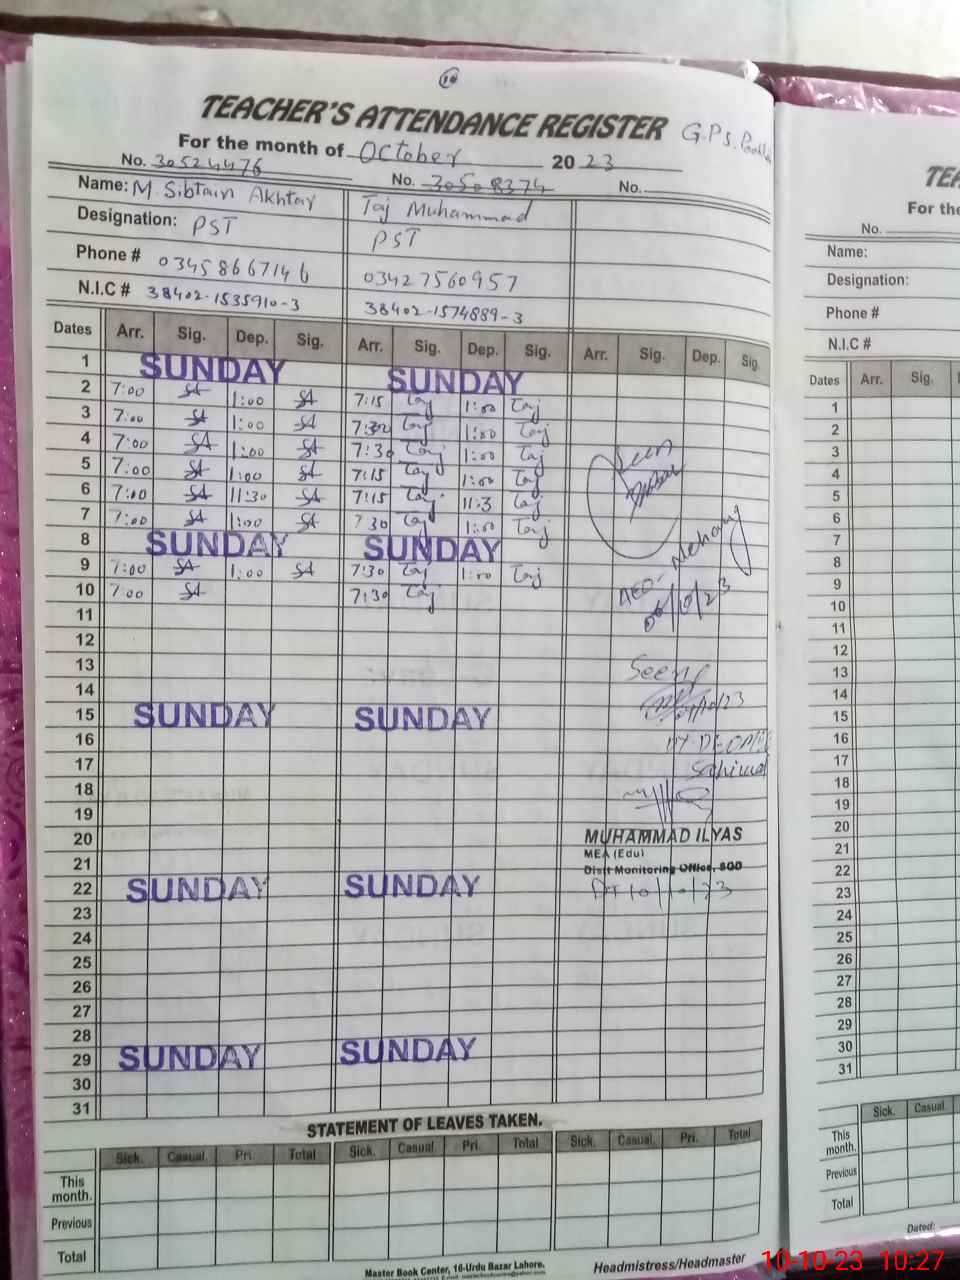 10
TEACHER'S ATTENDANCE REGISTER G.P.S.
For the month of October 2023
No. 30524476 No. 30508374 No.
Name: M. Sibtain Akhtar Taj Muhammad
Designation: PST PST
Phone # 03458667146 03427560957
N.I.C # 38402-1535910-3 38402-1574889-3
Dates Arr. Sig. Dep. Sig. Arr. Sig. Dep. Sig. Arr. Sig. Dep. Sig
1 SUNDAY SUNDAY
2 7:00 SA 1:00 SA 7:15 Taj 1:00 Taj
3 7:00 SA 1:00 SA 7:30 Taj 1:00 Taj
4 7:00 SA 1:00 SA 7:30 Taj 1:00 Taj
5 7:00 SA 1:00 SA 7:15 Taj 1:00 Taj
6 7:00 SA 11:30 SA 7:15 Taj 11:3 Taj
7 7:00 SA 1:00 SA 7 30 Taj 1:00 Taj
8 SUNDAY SUNDAY
9 7:00 SA 1:00 SA 7:30 Taj 1:00 Taj
10 7:00 SA 7:30 Taj
11
12
13
14
15 SUNDAY SUNDAY
16
17
18
19
20
21
22 SUNDAY SUNDAY
23
24
25
26
27
28
29 SUNDAY SUNDAY
30
31
Seen
AEO
06/10/23
Seen
/10/23
DY. DEO
MUHAMMAD ILYAS
MEA (Edu)
Distt Monitoring Office, SGD
DT 10/10/23
STATEMENT OF LEAVES TAKEN.
Sick. Casual. Pri. Total Sick. Casual. Pri. Total Sick. Casual. Pri. Total
This month.
Previous
Total
Master Book Center, 16-Urdu Bazar Lahore.
Headmistress/Headmaster
TEA
For the
No.
Name:
Designation:
Phone #
N.I.C #
Dates Arr. Sig.
1
2
3
4
5
6
7
8
9
10
11
12
13
14
15
16
17
18
19
20
21
22
23
24
25
26
27
28
29
30
31
Sick. Casual.
This month.
Previous
Total
Dated:
10-10-23 10:27